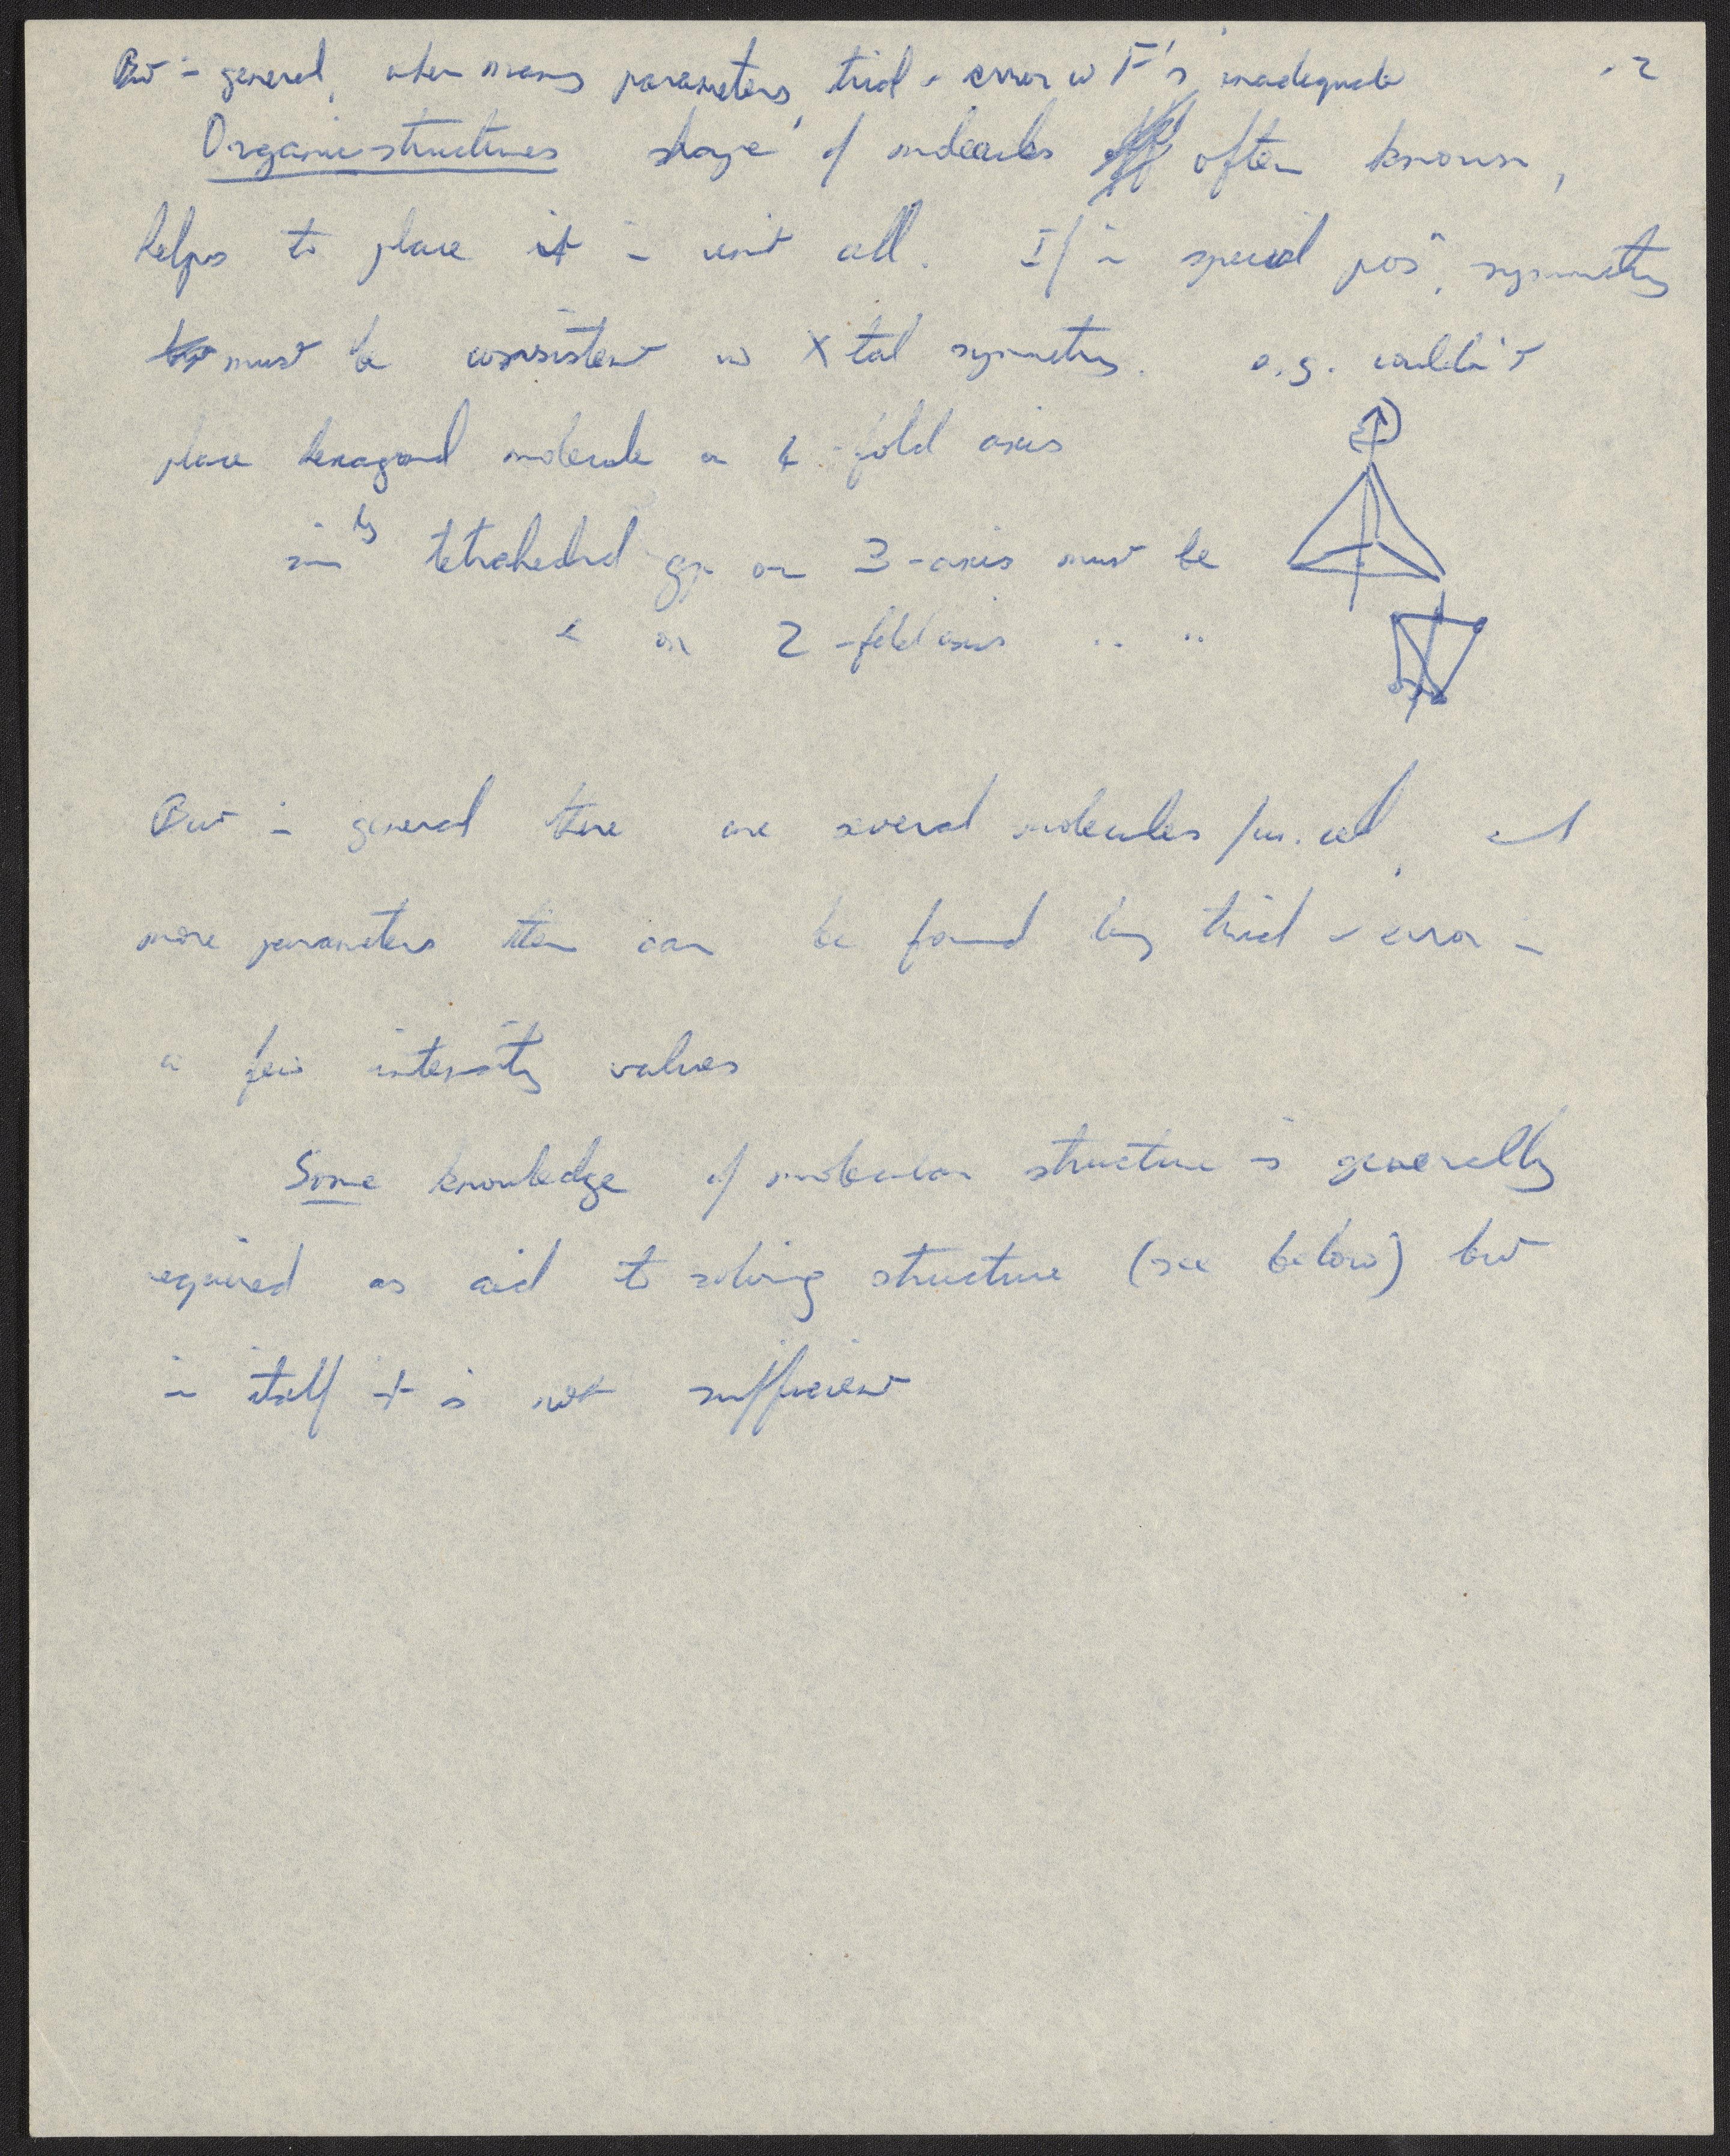 But in general, when many parameters, trial & error w F's inadequate
. 2
Organic structures shape of molecules often known,
helps to place it in unit cell. If in special posn, symmetry
must be consistent w Xtal symmetry. e.g. couldn't
place hexagonal molecule on 4-fold axis
simly tetrahedral gp on 3-axis must be
& on 2-fold axis " "
But in general there are several molecules /un. cell, and
more parameters than can be found by trial & error in
a few intensity values
Some knowledge of molecular structure is generally
required as aid to solving structure (see below) but
in itself it is not sufficient